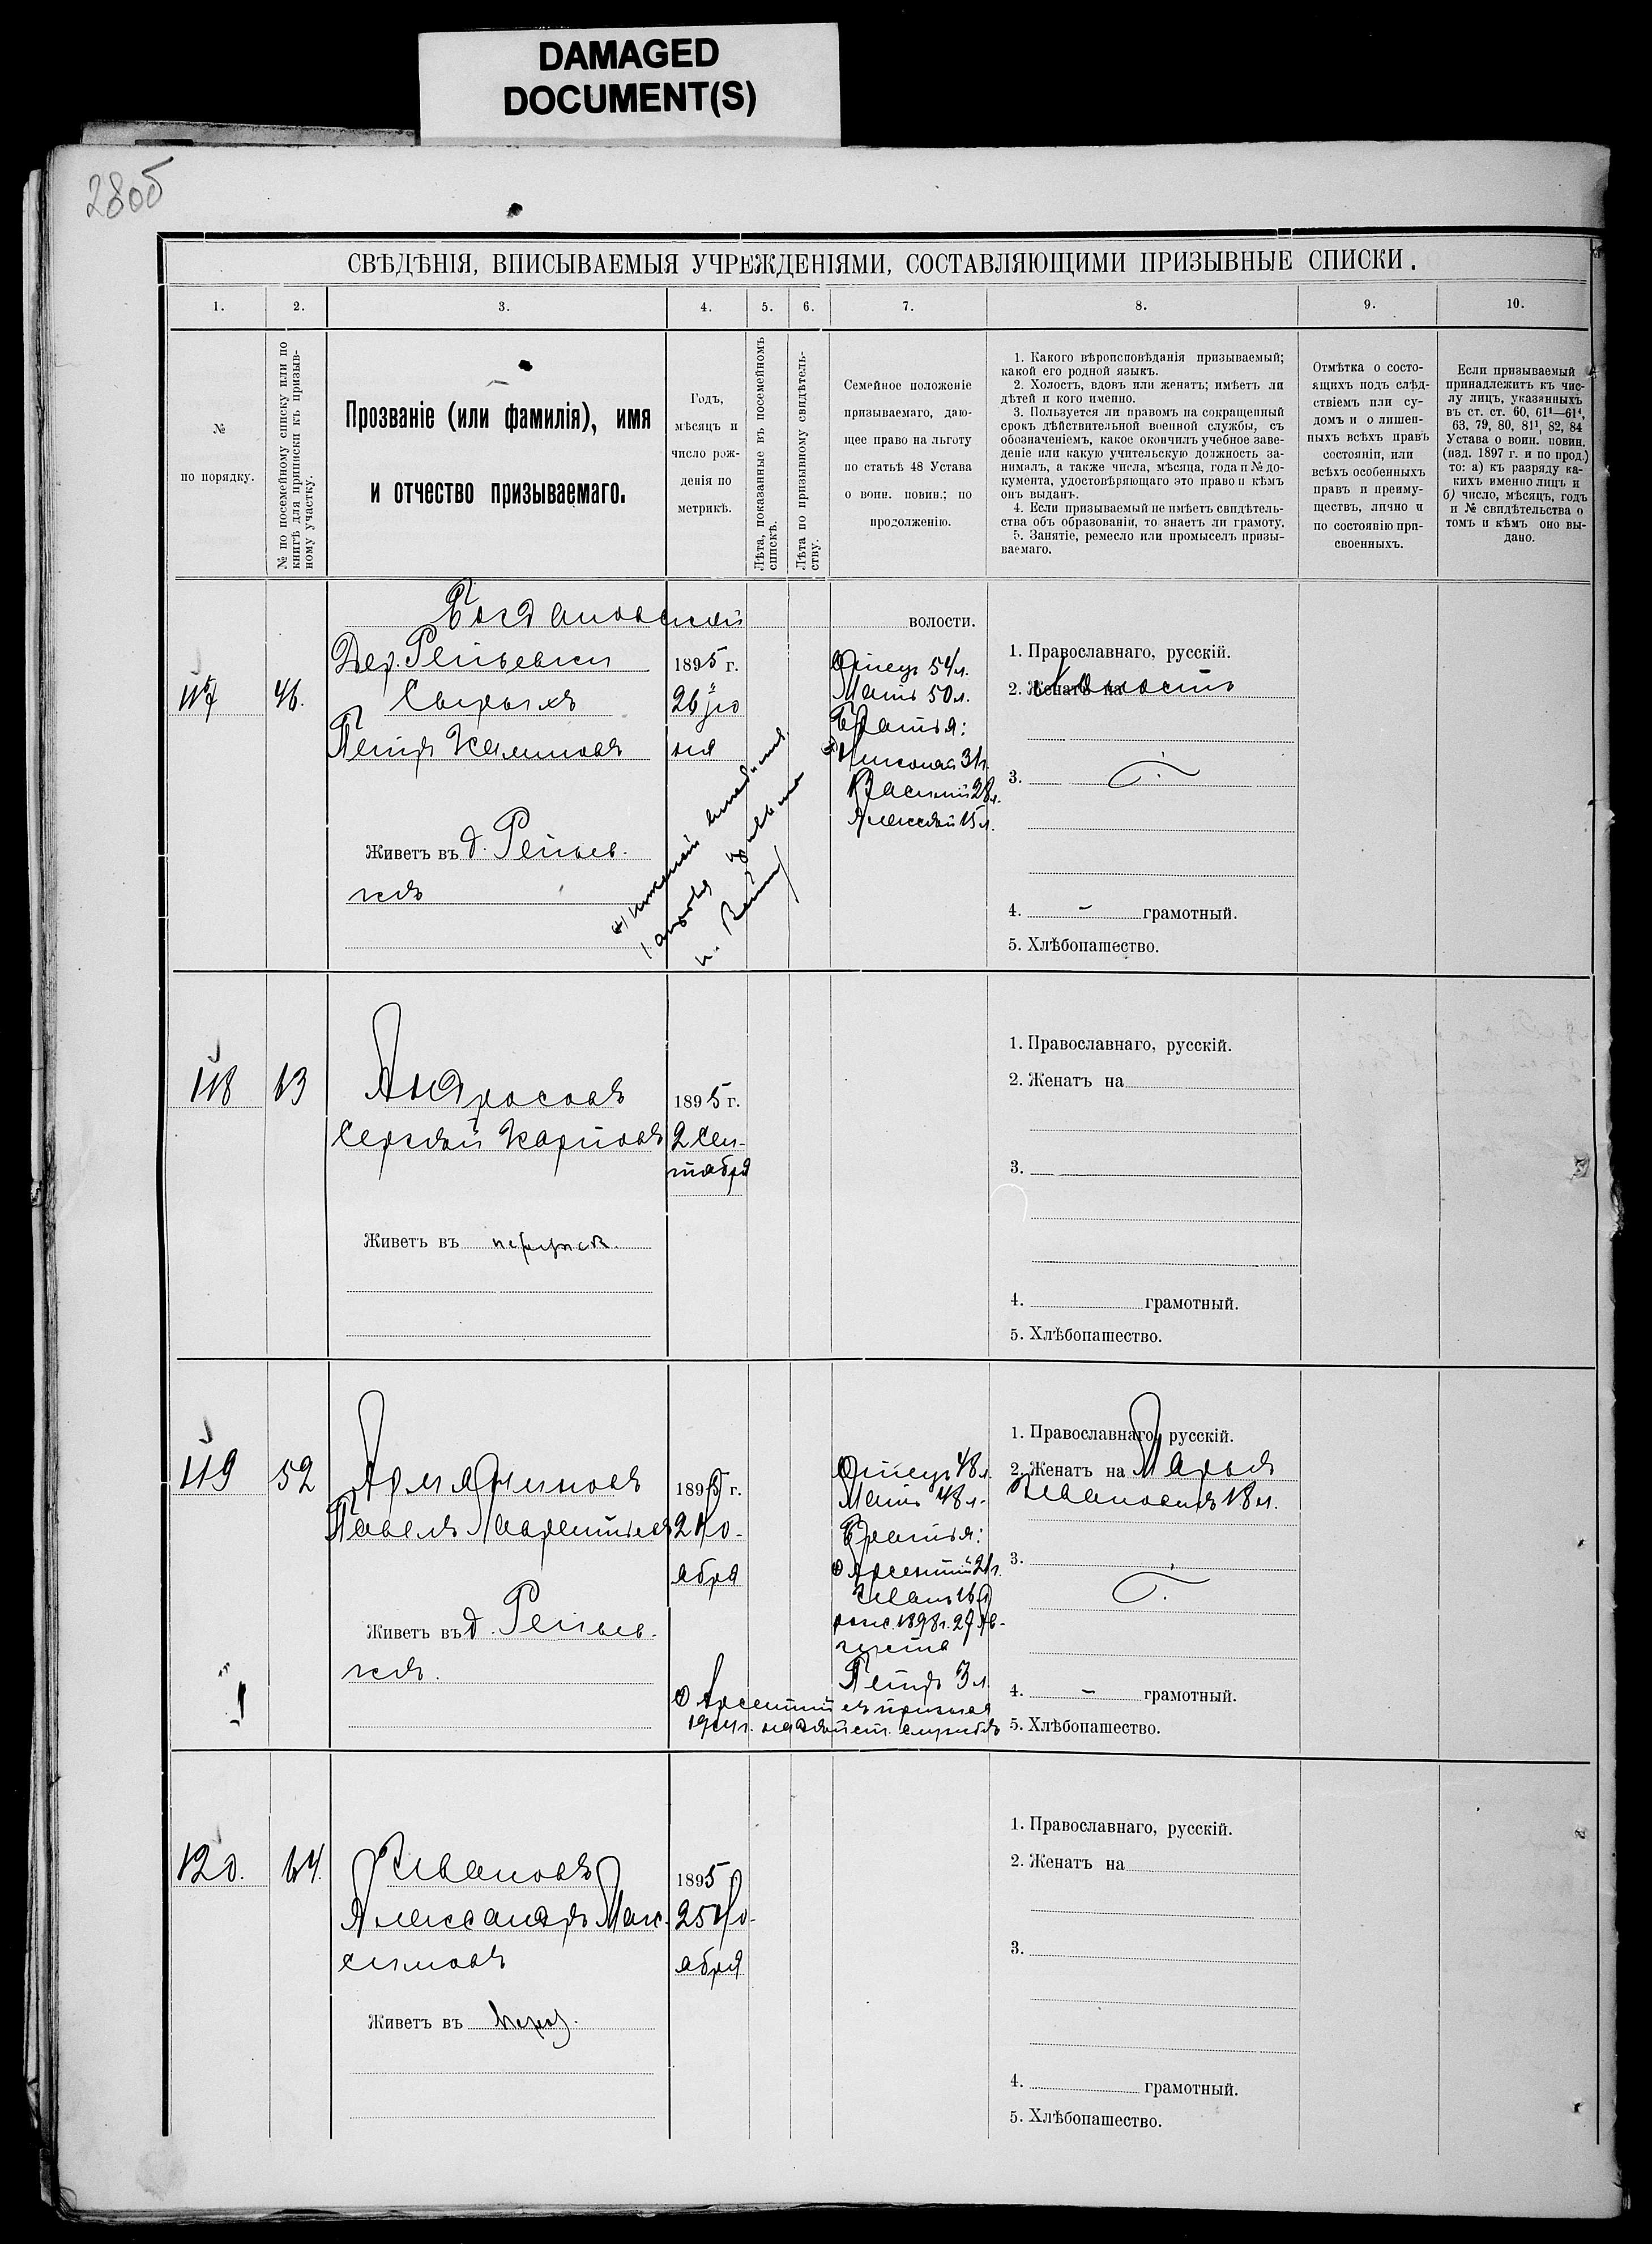 DAMAGED
DOCUMENT(S)
280б
СВѢДѢНІЯ, ВПИСЫВАЕМЫЯ УЧРЕЖДЕНІЯМИ, СОСТАВЛЯЮЩИМИ ПРИЗЫВНЫЕ СПИСКИ.
1. 2. 3. 4. 5. 6. 7. 8. 9. 10.
№
по порядку.
№ по посемейному списку или по
книгѣ для приписки къ призыв-
ному участку.
Прозваніе (или фамилія), имя
и отчество призываемаго.
Годъ,
мѣсяцъ и
число рож-
денія по
метрикѣ.
Лѣта, показанные въ посемейномъ
спискѣ.
Лѣта по призывному свидѣтель-
ству.
Семейное положеніе
призываемаго, даю-
щее право на льготу
по статьѣ 48 Устава
о воин. повин.; по
продолженію.
1. Какого вѣроисповѣданія призываемый;
какой его родной языкъ.
2. Холостъ, вдовъ или женатъ; имѣетъ ли
дѣтей и кого именно.
3. Пользуется ли правомъ на сокращенный
срокъ дѣйствительной военной службы, съ
обозначеніемъ, какое окончилъ учебное заве-
деніе или какую учительскую должность за-
нималъ, а также числа, мѣсяца, года и № до-
кумента, удостовѣряющаго это право и кѣмъ
онъ выданъ.
4. Если призываемый не имѣетъ свидѣтель-
ства объ образованіи, то знаетъ ли грамоту.
5. Занятіе, ремесло или промыселъ призы-
ваемаго.
Отмѣтка о состо-
ящихъ подъ слѣд-
ствіемъ или су-
домъ и о лишен-
ныхъ всѣхъ правъ
состоянія, или
всѣхъ особенныхъ
правъ и преиму-
ществъ, лично и
по состоянію при-
своенныхъ.
Если призываемый
принадлежитъ къ чис-
лу лицъ, указанныхъ
въ ст. ст. 60, 61¹—61⁴,
63, 79, 80, 81¹, 82, 84
Устава о воин. повин.
(изд. 1897 г. и по прод.)
то: а) къ разряду ка-
кихъ именно лицъ и
б) число, мѣсяцъ, годъ
и № свидѣтельства о
томъ и кѣмъ оно вы-
дано.
Богдановской волости.
117 46.
Дер. Репьевки
Сверчкъ
Петръ Климовъ
Живетъ въ д. Репьев-
кѣ
1895 г.
26 Iю
ня
Отецъ 54 л.
Мать 50 л.
Братья:
Николай 31 г.
Василий 28 л.
Алексѣй 15 л.
1. Православнаго, русскій.
2. Женатъ на Холостъ
3.
4. – грамотный.
5. Хлѣбопашество.
118 63
Андросовъ
Сергѣй Карповъ
Живетъ въ
1895 г.
2 Сен-
тября
1. Православнаго, русскій.
2. Женатъ на
3.
4. грамотный.
5. Хлѣбопашество.
119 52
Армяниновъ
Павелъ Лаврентьевъ
Живетъ въ д. Репьев-
кѣ.
1895 г.
2 Но-
ября
Отецъ 48 л.
Мать 48 л.
Братья:
Арсентий 21 г.
Иванъ 16 л.
1898 г. 27 Ав-
густа
Петръ 3 л.
Арсентий въ призывъ
1914 г. на дѣйст. службѣ
1. Православнаго, русскій.
2. Женатъ на Марья
Ивановнѣ 18 л.
3.
4. – грамотный.
5. Хлѣбопашество.
120. 64.
Ивановъ
Александръ Мак-
симовъ
Живетъ въ
1895
25 Но-
ября
1. Православнаго, русскій.
2. Женатъ на
3.
4. грамотный.
5. Хлѣбопашество.